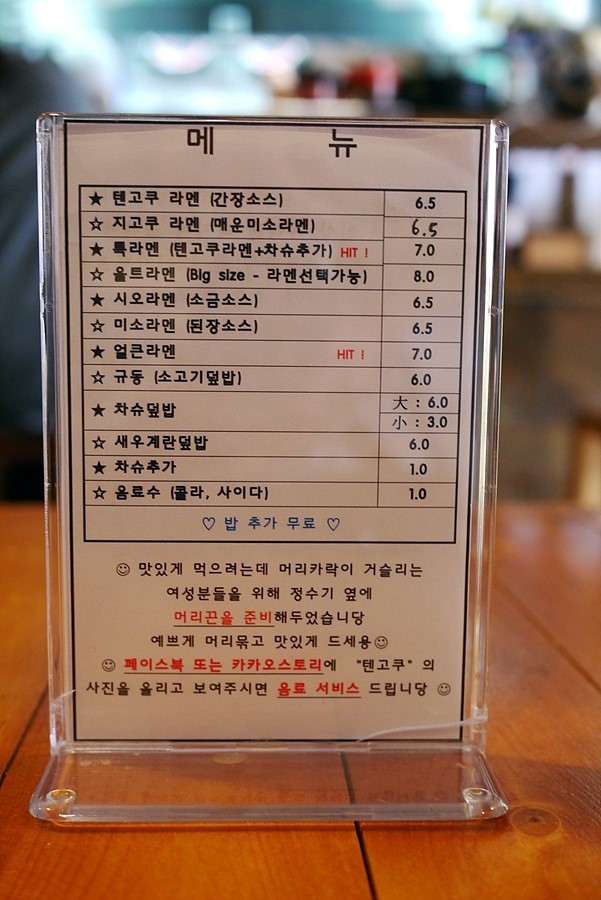 메 뉴
★ 텐고쿠 라멘 (간장소스) 6.5
☆ 지고쿠 라멘 (매운미소라멘) 6.5
★ 특라멘 (텐고쿠라멘+차슈추가) HIT ! 7.0
☆ 울트라멘 (Big size - 라멘선택가능) 8.0
★ 시오라멘 (소금소스) 6.5
☆ 미소라멘 (된장소스) 6.5
★ 얼큰라멘 HIT ! 7.0
☆ 규동 (소고기덮밥) 6.0
★ 차슈덮밥 大 : 6.0
小 : 3.0
☆ 새우계란덮밥 6.0
★ 차슈추가 1.0
☆ 음료수 (콜라, 사이다) 1.0
♡ 밥 추가 무료 ♡
☺ 맛있게 먹으려는데 머리카락이 거슬리는
여성분들을 위해 정수기 옆에
머리끈을 준비해두었습니당
예쁘게 머리묶고 맛있게 드세용☺
☺ 페이스북 또는 카카오스토리에 "텐고쿠" 의
사진을 올리고 보여주시면 음료 서비스 드립니당 ☺